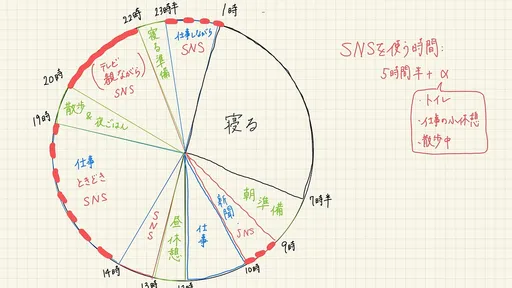 22時
23時半
1時
仕事しながら
SNS
寝る準備
(テレビ
観ながら)
SNS
20時
散歩
& 夜ごはん
19時
寝る
仕事
ときどき
SNS
7時半
朝
準備
9時
新聞
SNS
10時
仕事
12時
昼休憩
13時
SNS
14時
SNSを使う時間:
5時間半+α
・トイレ
・仕事の小休憩
・散歩中